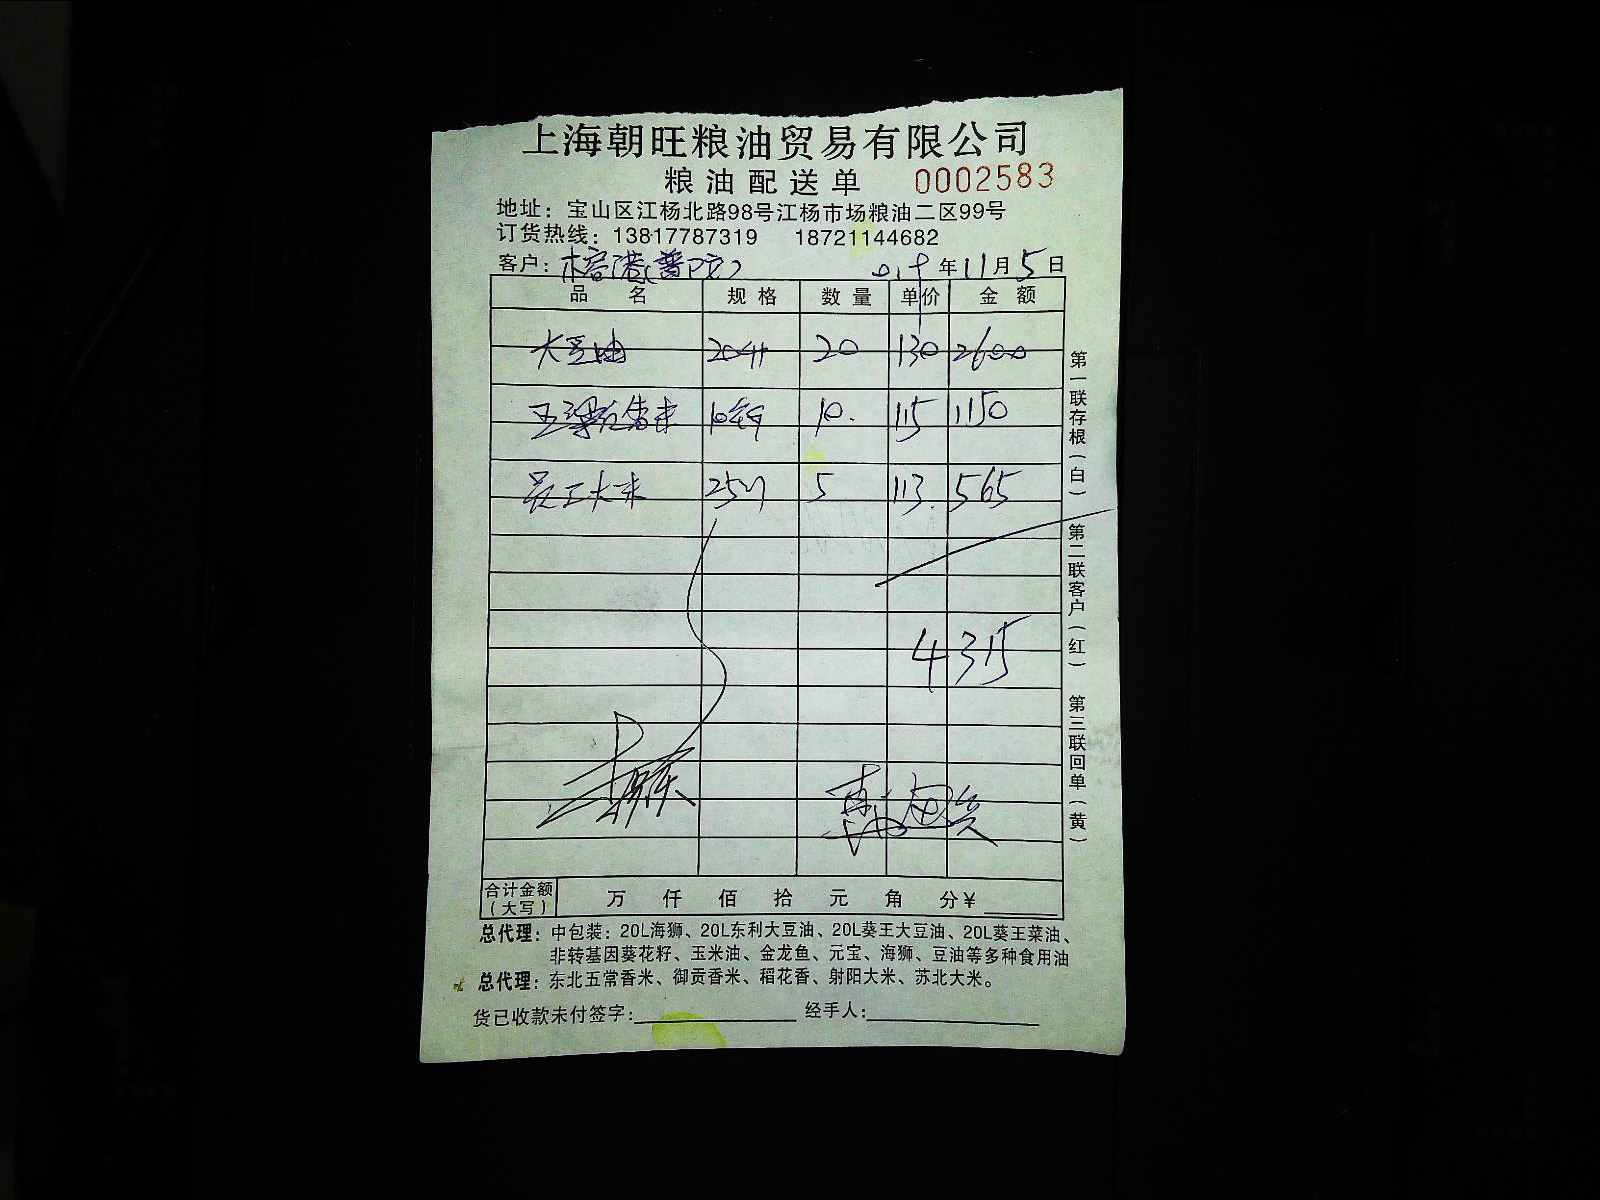 上海朝旺粮油贸易有限公司
粮油配送单 0002583
地址：宝山区江杨北路98号江杨市场粮油二区99号
订货热线：13817787319 18721144682
客户： 年11月5日
品名 规格 数量 单价 金额
大豆油 20 130 2600
10 115 1150
大米 5 113 565
4315
合计金额（大写） 万 仟 佰 拾 元 角 分￥
总代理：中包装：20L海狮、20L东利大豆油、20L葵王大豆油、20L葵王菜油、
非转基因葵花籽、玉米油、金龙鱼、元宝、海狮、豆油等多种食用油
总代理：东北五常香米、御贡香米、稻花香、射阳大米、苏北大米。
货已收款未付签字： 经手人：
第一联存根（白） 第二联客户（红） 第三联回单（黄）